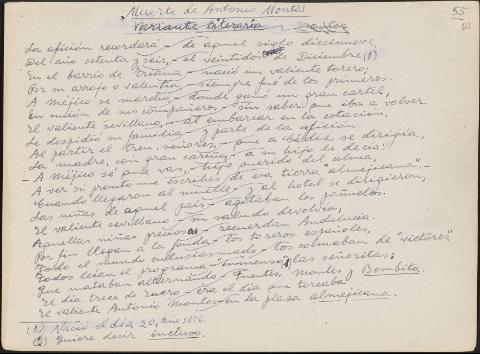 Muerte de Antonio Montes
55
Variante literaria
62
La afición recordara - de aquel siglo diecinueve,
Del año setenta y seis, - el veintidós de Diciembre (1)
En el barrio de Triana - nació un valiente torero;
Por su arrojo o valentía - siempre fué de los primeros.
A Méjico se marcho, - donde ganó un gran cartel,
En unión de sus compañeros, - sin saber que iba a volver.
El valiente sevillano, - al embarcar en la estación,
Se despidió su familia - y parte de la afición.
Al partir el tren, señores, - que a Cádiz se dirigía,
La madre, con gran cariño, - a su hijo le decía:
- A Méjico sé que vas, - hijo querido del alma,
A ver si pronto me escribes de esa tierra "almejicana". -
Cuando llegaron al muelle - y al hotel se dirigieron,
Las niñas de aquel país - agitaban los pañuelos.
El valiente sevillano - su saludo devolvía;
Aquellas niñas preciosas - recuerdan Andalucía.
Por fin llegan a la fonda - los toreros españoles,
Todo el mundo entusiasmado - los colmaban de "victores".
Todos leían el programa - inmenso (2) las señoritas:
Que mataban alternando Fuentes, Montes y Bombita.
El día trece de Enero - era el día que toreaba
El valiente Antonio Montes - en la plaza almejicana.
(1) Nació el día 20, año 1876.
(2) Quiere decir incluso.